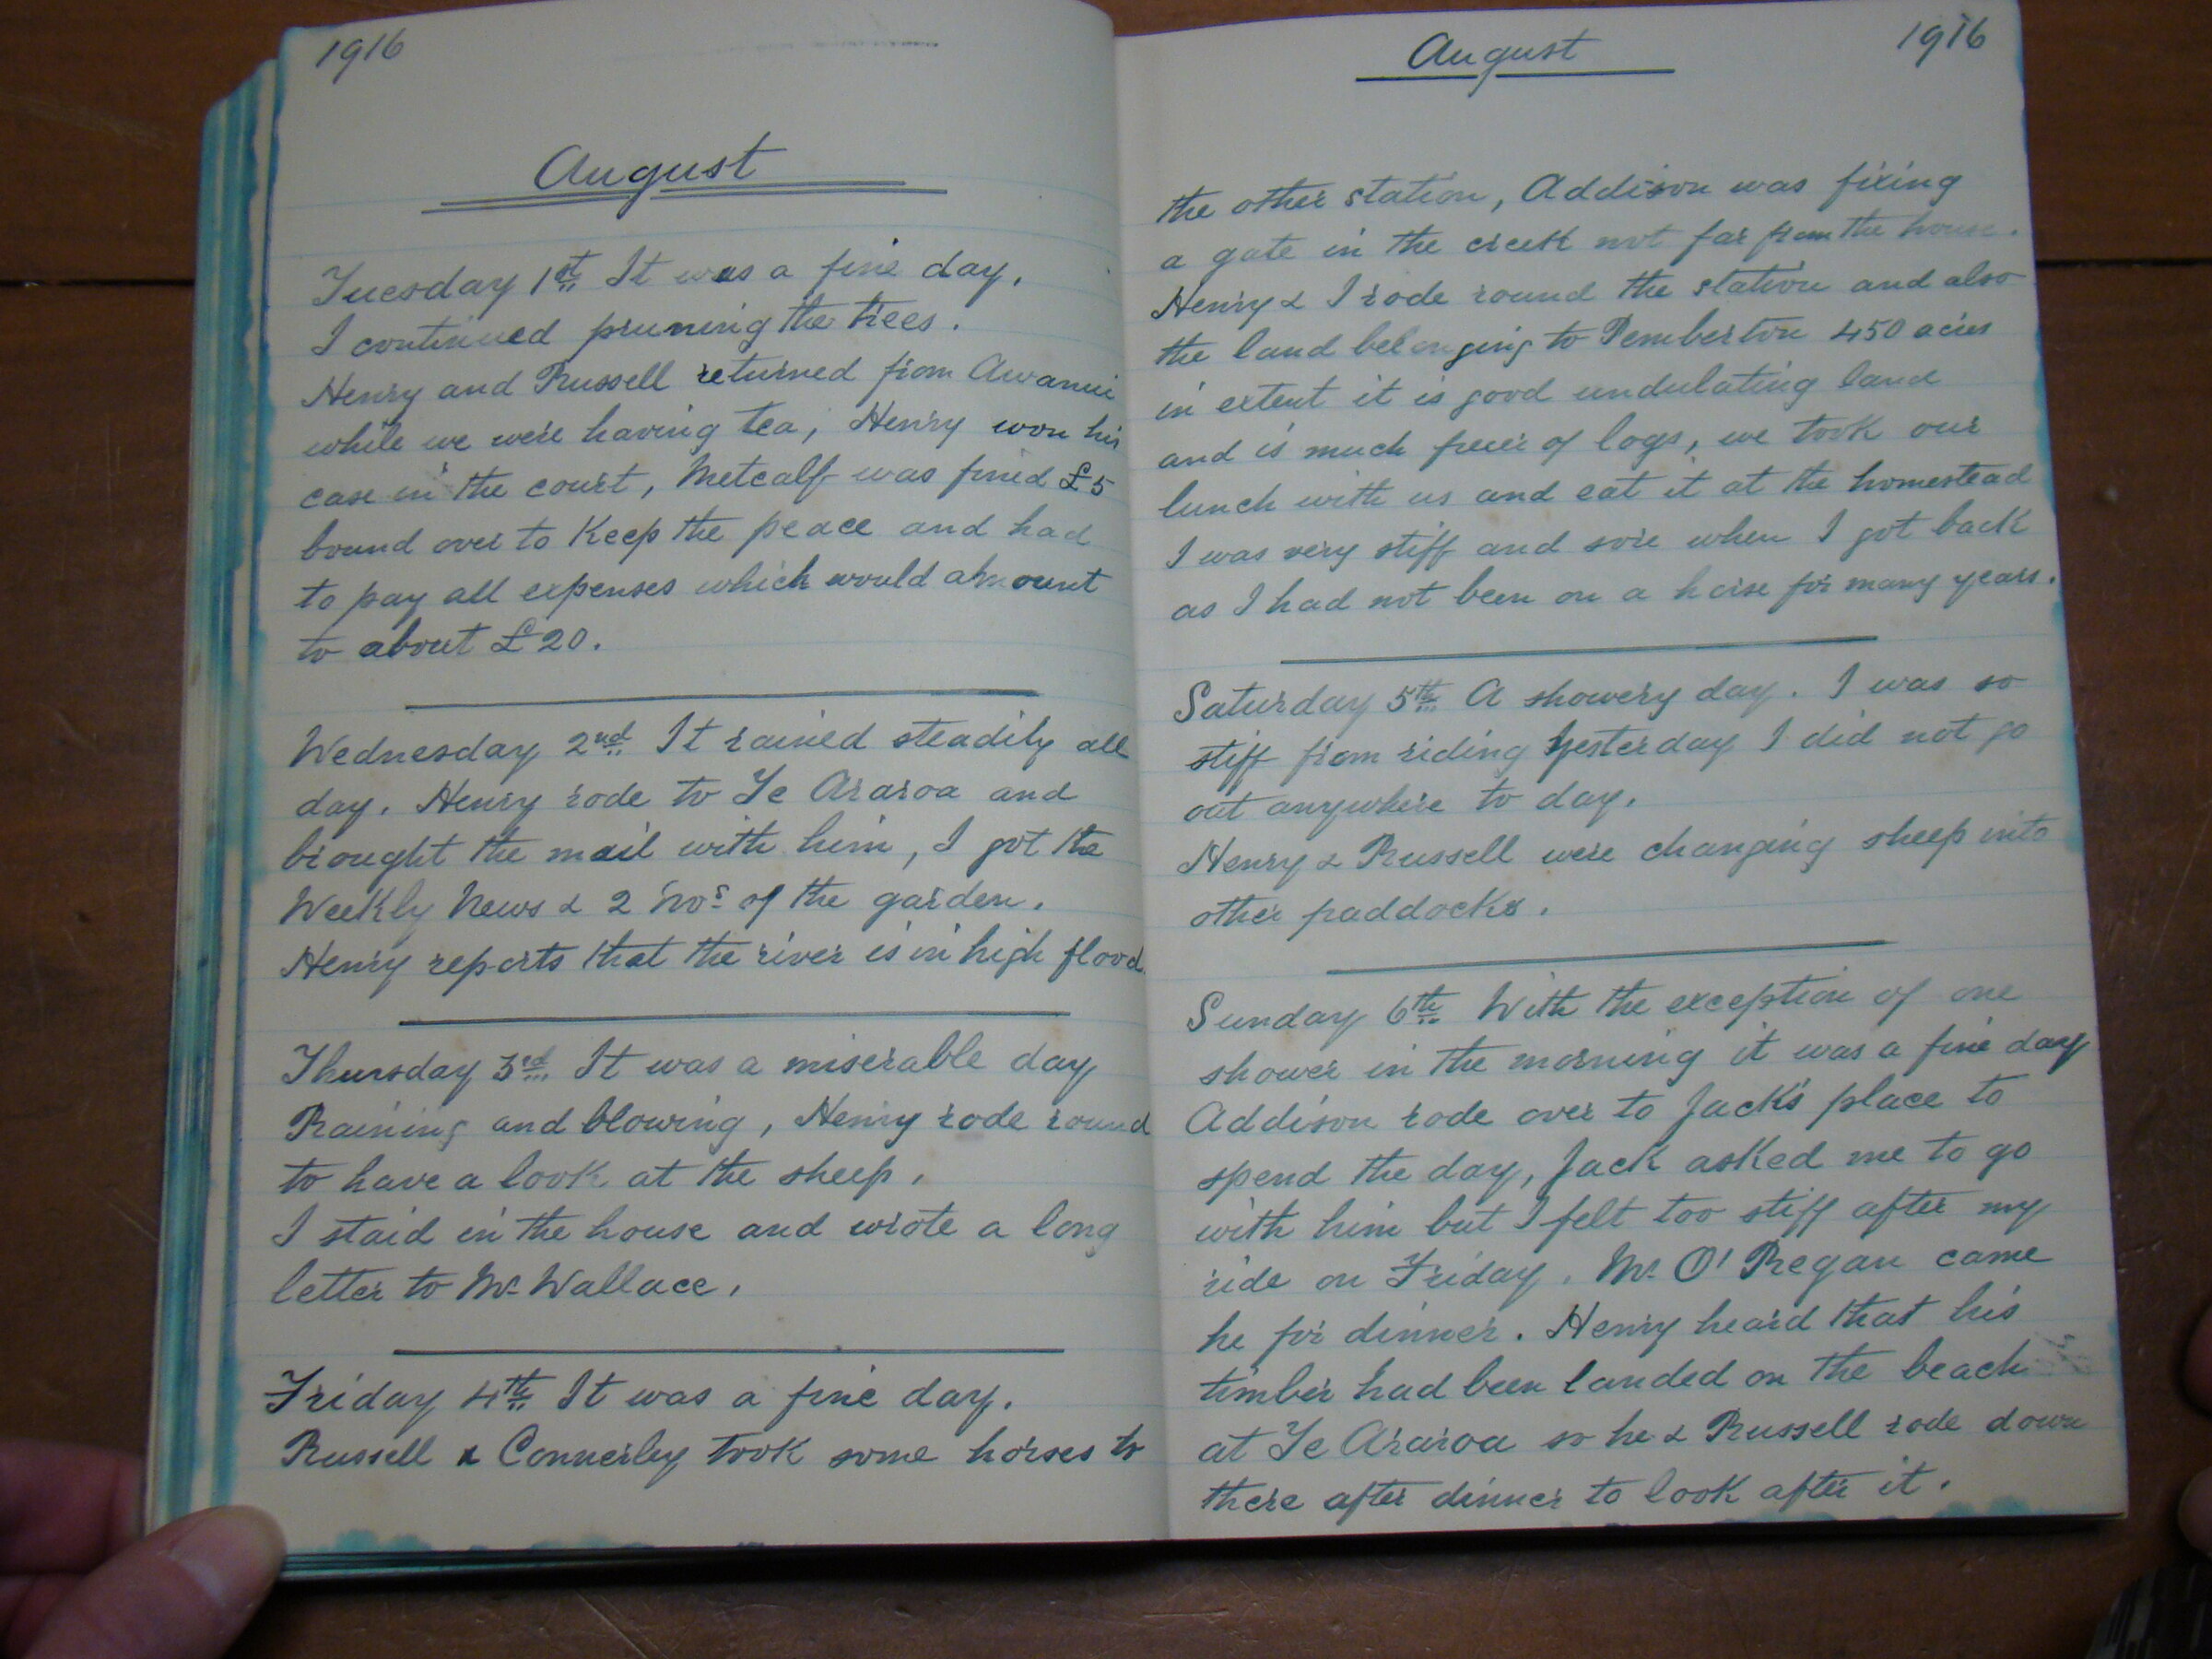 1916
August
Tuesday 1st It was a fine day.
I continued pruning the trees.
Henry and Russell returned from Awanui
while we were having tea, Henry won his
case in the court, Metcalf was fined £5
bound over to Keep the peace and had
to pay all expenses which would amount
to about £20.
Wednesday 2nd It rained steadily all
day. Henry rode to Te Araroa and
brought the mail with him, I got the
Weekly News & 2 Nos of the garden.
Henry reports that the river is in high flood
Thursday 3rd It was a miserable day
Raining and blowing, Henry rode round
to have a look at the sheep.
I staid in the house and wrote a long
letter to Mr Wallace.
Friday 4th It was a fine day.
Russell & Connerley took some horses to
August 1916
the other station, Addison was fixing
a gate in the creek not far from the house.
Henry & I rode round the station and also
the land belonging to Pemberton 450 acres
in extent it is good undulating land
and is much freer of logs, we took our
lunch with us and eat it at the homestead
I was very stiff and sore when I got back
as I had not been on a horse for many years.
Saturday 5th A showery day. I was so
stiff from riding yesterday I did not go
out anywhere to day.
Henry & Russell were changing sheep into
other paddocks.
Sunday 6th With the exception of one
shower in the morning it was a fine day
Addison rode over to Jack's place to
spend the day, Jack asked me to go
with him but I felt too stiff after my
ride on Friday. Mr O'Regan came
he for dinner. Henry heard that his
timber had been landed on the beach
at Te Araroa so he & Russell rode down
there after dinner to look after it.